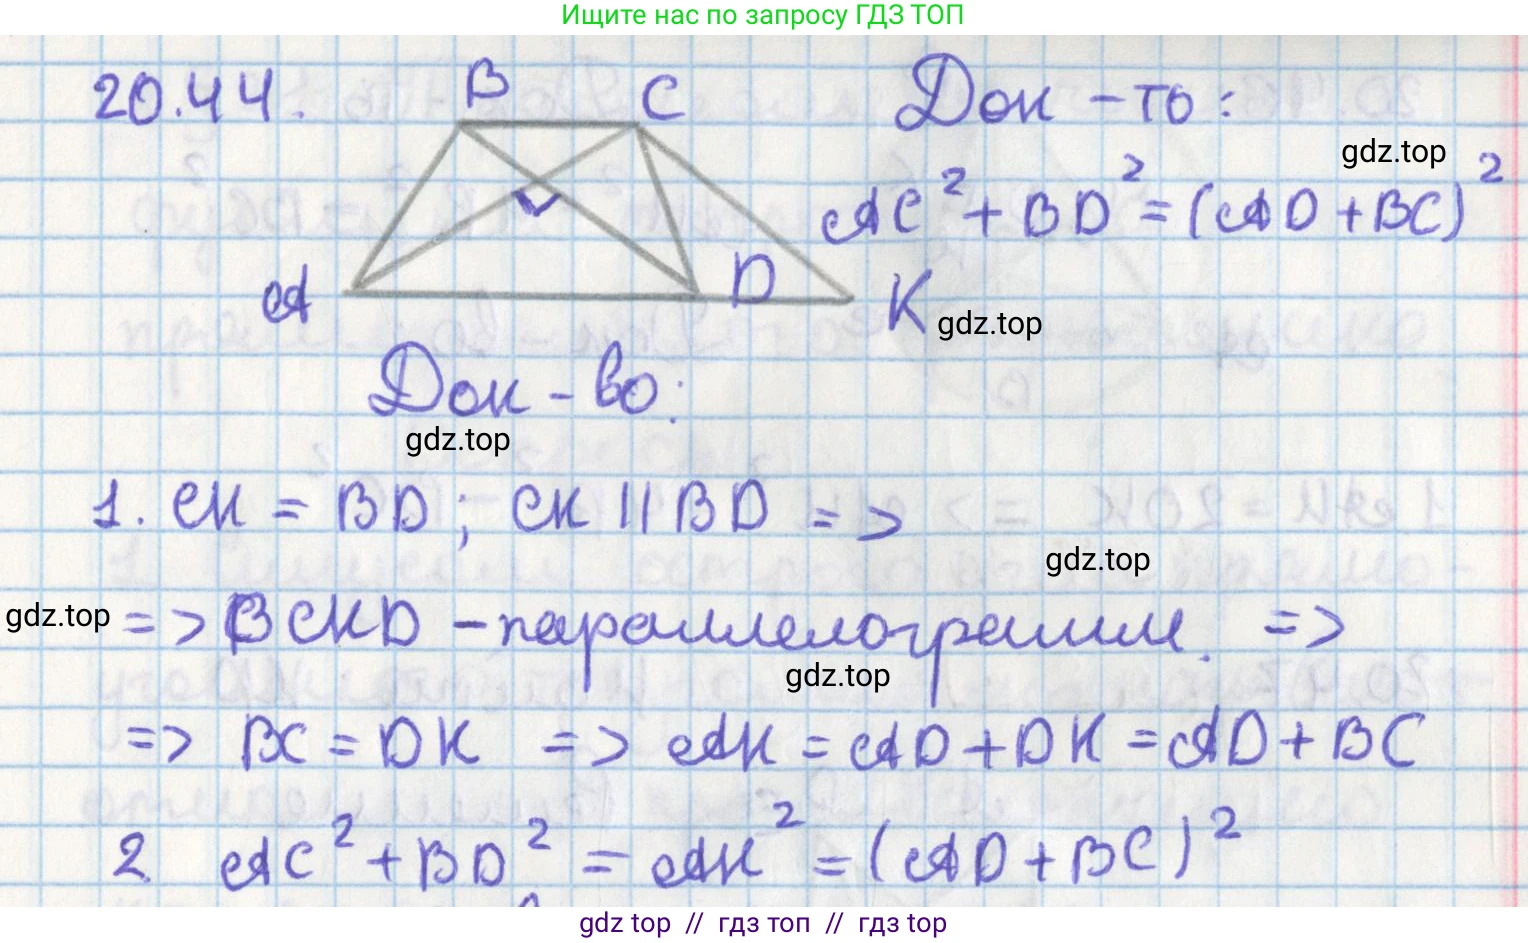 Ищите нас по запросу ГДЗ ТОП
20.44.
B
C
A
D
K
Док-ть:
gdz.top
AC² + BD² = (AD + BC)²
gdz.top
Док-во:
gdz.top
1. CK = BD; CK || BD =>
gdz.top
gdz.top
=> BCKD - параллелограмм. =>
gdz.top
=> BC = DK => AK = AD + DK = AD + BC
2. AC² + BD² = AK² = (AD + BC)²
gdz top // гдз топ // гдз top